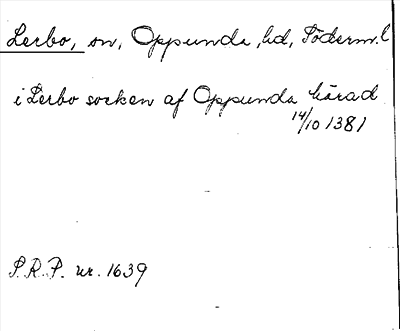 Lerbo, sn, Oppunda, hd, Söderm.l
i Lerbo socken af Oppunda härad
14/10 1381
S.R.P. nr. 1639